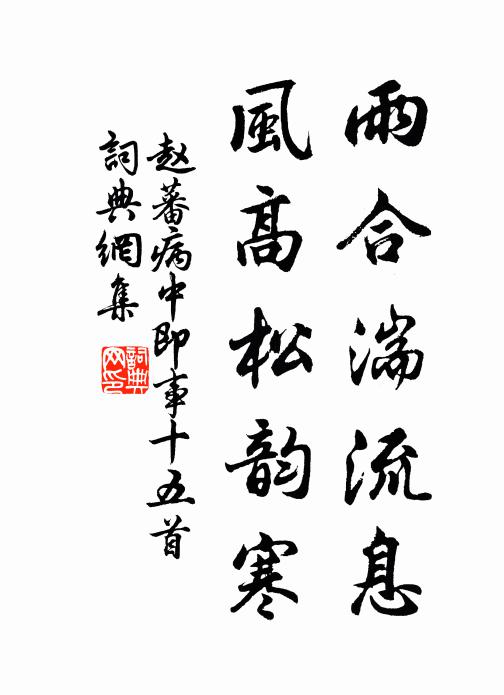 雨合湍流息
風高松韵寒
赵蕃病中即事十五首
詞典網集
詞典网印